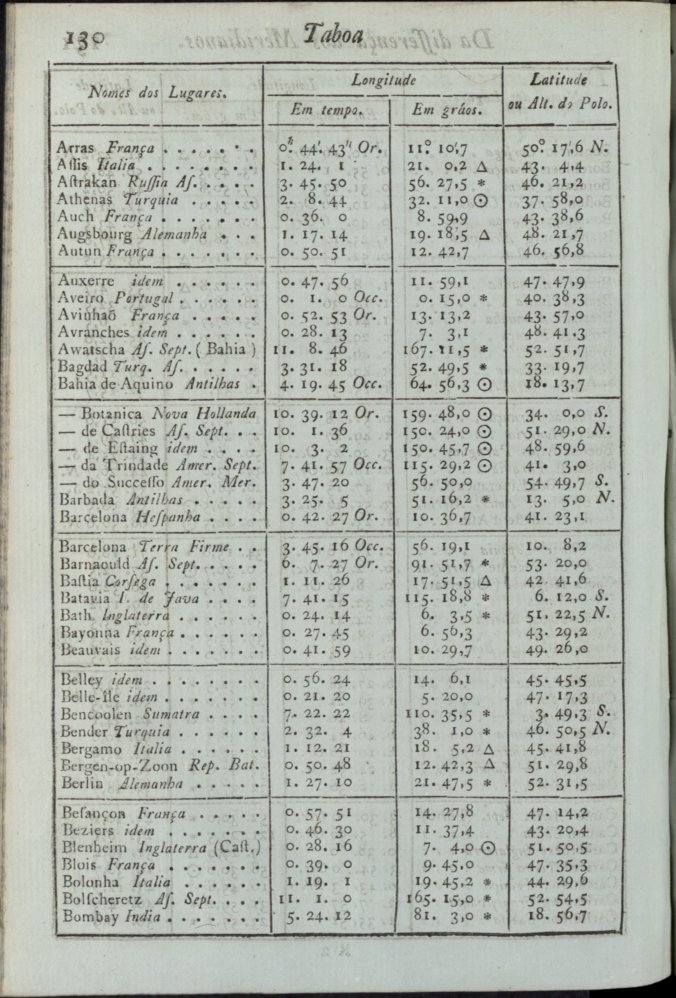 130 Taboa
Nomes dos Lugares. Longitude Latitude
Em tempo. Em gráos. ou Alt. do Polo.
Arras França . . . . . . 0.ʰ 44.′ 43″ Or. 11.° 10,′7 50.° 17,′6 N.
Aſſis Italia . . . . . . . 1. 24. 1 21. 0,2 △ 43. 4,4
Aſtrakan Ruſſia Aſ. . . . . 3. 45. 50 56. 27,5 * 46. 21,2
Athenas Turquia . . . . . 2. 8. 44 32. 11,0 ⊙ 37. 58,0
Auch França . . . . . . 0. 36. 0 8. 59,9 43. 38,6
Augsbourg Alemanha . . . 1. 17. 14 19. 18,5 △ 48. 21,7
Autun França . . . . . . 0. 50. 51 12. 42,7 46. 56,8
Auxerre idem . . . . . . 0. 47. 56 11. 59,1 47. 47,9
Aveiro Portugal . . . . . . 0. 1. 0 Occ. 0. 15,0 * 40. 38,3
Avinhaõ França . . . . . 0. 52. 53 Or. 13. 13,2 43. 57,0
Avranches idem . . . . . . 0. 28. 13 7. 3,1 48. 41,3
Awatscha Aſ. Sept. ( Bahia ) 11. 8. 46 167. 11,5 * 52. 51,7
Bagdad Turq. Aſ. . . . . . 3. 31. 18 52. 49,5 * 33. 19,7
Bahia de Aquino Antilhas . 4. 19. 45 Occ. 64. 56,3 ⊙ 18. 13,7
— Botanica Nova Hollanda 10. 39. 12 Or. 159. 48,0 ⊙ 34. 0,0 S.
— de Caſtries Aſ. Sept. . . 10. 1. 36 150. 24,0 ⊙ 51. 29,0 N.
— de Eſtaing idem . . . . 10. 3. 2 150. 45,7 ⊙ 48. 59,6
— da Trindade Amer. Sept. 7. 41. 57 Occ. 115. 29,2 ⊙ 41. 3,0
— do Succeſſo Amer. Mer. 3. 47. 20 56. 50,0 54. 49,7 S.
Barbada Antilhas . . . . . 3. 25. 5 51. 16,2 * 13. 5,0 N.
Barcelona Heſpanha . . . . 0. 42. 27 Or. 10. 36,7 41. 23,1
Barcelona Terra Firme . . 3. 45. 16 Occ. 56. 19,1 10. 8,2
Barnaould Aſ. Sept. . . . . 6. 7. 27 Or. 91. 51,7 * 53. 20,0
Baſtia Corſega . . . . . . . 1. 11. 26 17. 51,5 △ 42. 41,6
Batavia I. de Java . . . . 7. 41. 15 115. 18,8 * 6. 12,0 S.
Bath Inglaterra . . . . . . 0. 24. 14 6. 3,5 * 51. 22,5 N.
Bayonna França . . . . . . 0. 27. 45 6. 56,3 43. 29,2
Beauvais idem . . . . . . . 0. 41. 59 10. 29,7 49. 26,0
Belley idem . . . . . . . . 0. 56. 24 14. 6,1 45. 45,5
Belle-Ile idem . . . . . . . 0. 21. 20 5. 20,0 47. 17,3
Bencoolen Sumatra . . . . 7. 22. 22 110. 35,5 * 3. 49,3 S.
Bender Turquia . . . . . . 2. 32. 4 38. 1,0 * 46. 50,5 N.
Bergamo Italia . . . . . . 1. 12. 21 18. 5,2 △ 45. 41,8
Bergen-op-Zoon Rep. Bat. 0. 50. 48 12. 42,3 △ 51. 29,8
Berlin Alemanha . . . . . 1. 27. 10 21. 47,5 * 52. 31,5
Beſançon França . . . . . 0. 57. 51 14. 27,8 47. 14,2
Beziers idem . . . . . . . 0. 46. 30 11. 37,4 43. 20,4
Blenheim Inglaterra (Caſt.) 0. 28. 16 7. 4,0 ⊙ 51. 50,5
Blois França . . . . . . . 0. 39. 0 9. 45,0 47. 35,3
Bolonha Italia . . . . . . 1. 19. 1 19. 45,2 * 44. 29,6
Bolſcheretz Aſ. Sept. . . . 11. 1. 0 165. 15,0 * 52. 54,5
Bombay India . . . . . . . 5. 24. 12 81. 3,0 * 18. 56,7